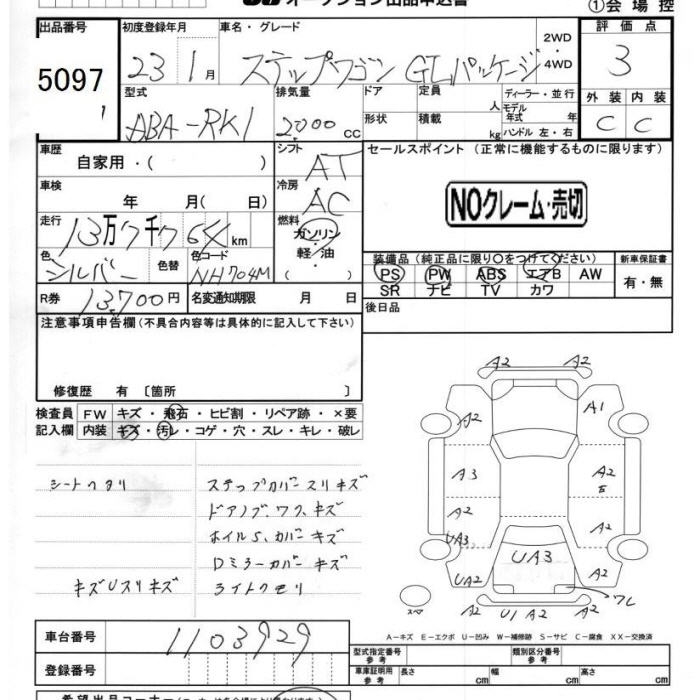 オークション出品申込書
①会場控
出品番号 初度登録年月 車名・グレード 評価点
5097 23 1月 ステップワゴン GLパッケージ 2WD・4WD 3
型式 排気量 ドア 定員 人 ディーラー・並行 外装 内装
ABA-RK1 2.000cc 形状 積載 kg モデル年式 年 ハンドル 左・右 C C
車歴 自家用・( ) シフト AT セールスポイント (正常に機能するものに限ります)
車検 年 月( 日) 冷房 AC NOクレーム・売切
走行 13万7千764km 燃料 ガソリン・軽油・( )
色 シルバー 色替 色コード NH704M 装備品(純正品に限り○をつけてください) 新車保証書
PS PW ABS エアB AW 有・無
R券 13,700円 名変通知期限 月 日 SR ナビ TV カワ
注意事項申告欄(不具合内容等は具体的に記入して下さい) 後日品
修復歴 有〔箇所 〕
検査員記入欄 FW キズ・飛石・ヒビ割・リペア跡・×要
内装 キズ・汚レ・コゲ・穴・スレ・キレ・破レ
シートヘタリ ステップカバースリキズ
ドアノブ、ワク、キズ
ホイルS、カバーキズ
Dミラーカバーキズ
キズUスリキズ ライトクモリ
A2 A2
A2 A1
A3 A2 E
A2 A2
UA3 UA3
UA2 A2
スペア A2 U1 A2 ワレ
A-キズ E-エクボ U-凹み W-補修跡 S-サビ C-腐食 XX-交換済
車台番号 1103929 型式指定番号 参考 類別区分番号 参考
登録番号 車庫証明用 参考 長さ cm 幅 cm 高さ cm
希望出品コーナー